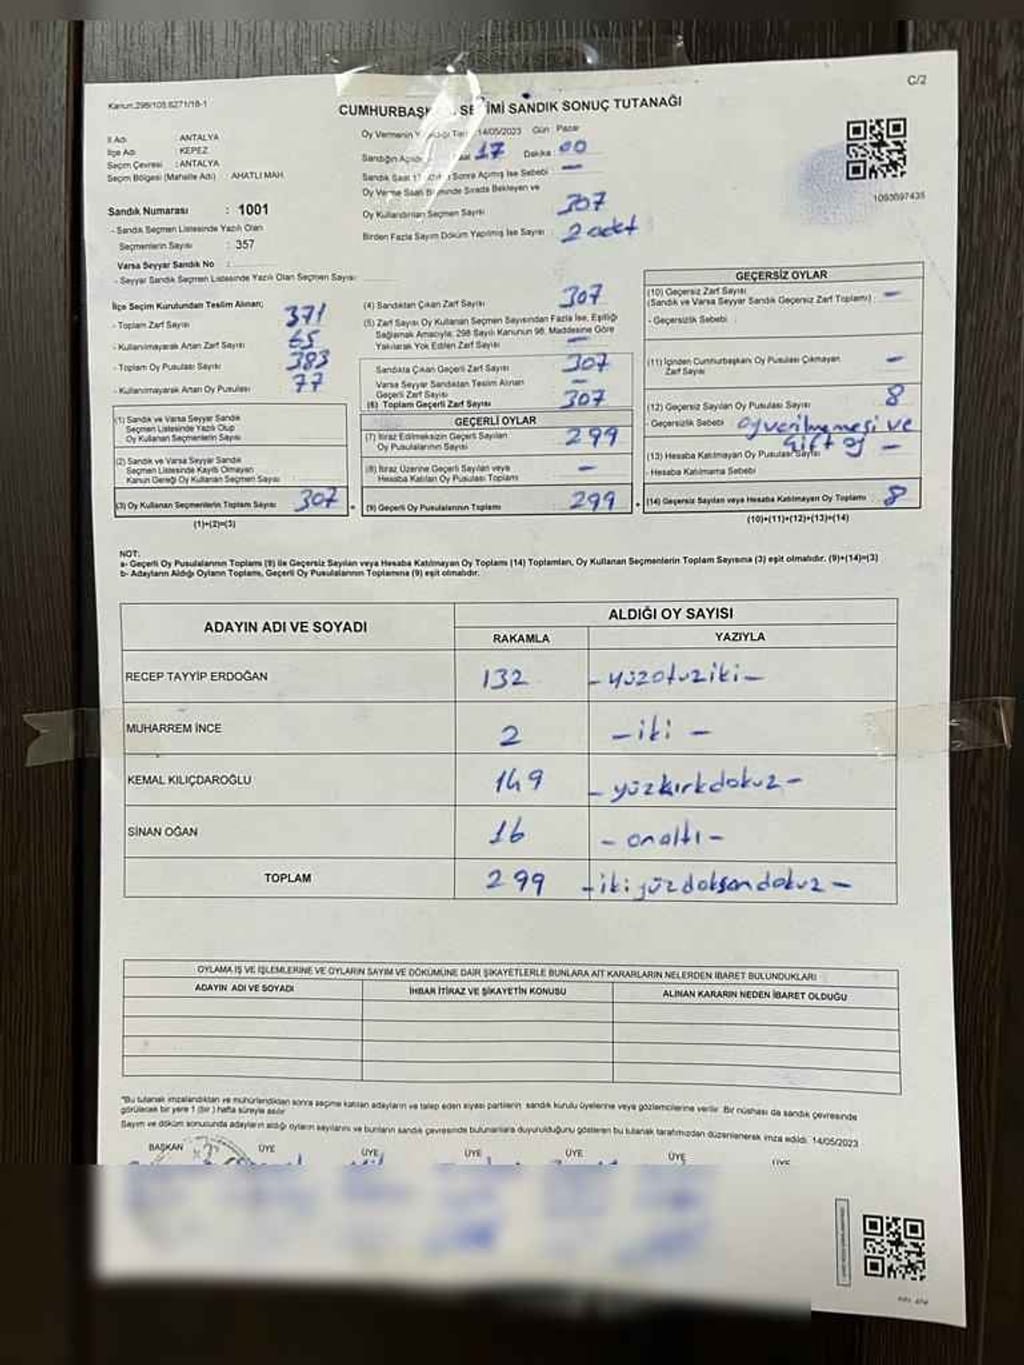 C/2
Kanun:298/105.6271/18-1
CUMHURBAŞK SEÇİMİ SANDIK SONUÇ TUTANAĞI
İl Adı : ANTALYA
İlçe Adı : KEPEZ
Seçim Çevresi : ANTALYA
Seçim Bölgesi (Mahalle Adı) : AHATLI MAH.
Sandık Numarası : 1001
- Sandık Seçmen Listesinde Yazılı Olan
Seçmenlerin Sayısı : 357
Varsa Seyyar Sandık No :
- Seyyar Sandık Seçmen Listesinde Yazılı Olan Seçmen Sayısı:
Oy Vermenin 14/05/2023 Gün : Pazar
Sandığın Açıldığı Saat 17 Dakika : 00
Sandık Saat Sonra Açımış İse Sebebi : —
Oy Verme Saati Bitiminde Sırada Bekleyen ve
Oy Kullandırılan Seçmen Sayısı : 307
Birden Fazla Sayım Döküm Yapılmış İse Sayısı : 2 adet
1093097435
İlçe Seçim Kurulundan Teslim Alınan;
- Toplam Zarf Sayısı : 371
- Kullanılmayarak Artan Zarf Sayısı : 65
- Toplam Oy Pusulası Sayısı : 383
- Kullanılmayarak Artan Oy Pusulası : 77
(1) Sandık ve Varsa Seyyar Sandık
Seçmen Listesinde Yazılı Olup
Oy Kullanan Seçmenlerin Sayısı :
(2) Sandık ve Varsa Seyyar Sandık
Seçmen Listesinde Kayıtlı Olmayan
Kanun Gereği Oy Kullanan Seçmen Sayısı :
(3) Oy Kullanan Seçmenlerin Toplam Sayısı : 307
(1)+(2)=(3)
(4) Sandıktan Çıkan Zarf Sayısı : 307
(5) Zarf Sayısı Oy Kullanan Seçmen Sayısından Fazla İse, Eşitliği
Sağlamak Amacıyla, 298 Sayılı Kanunun 98. Maddesine Göre
Yakılarak Yok Edilen Zarf Sayısı : —
Sandıkta Çıkan Geçerli Zarf Sayısı : 307
Varsa Seyyar Sandıktan Teslim Alınan
Geçerli Zarf Sayısı : —
(6) Toplam Geçerli Zarf Sayısı : 307
GEÇERLİ OYLAR
(7) İtiraz Edilmeksizin Geçerli Sayılan
Oy Pusulalarının Sayısı : 299
(8) İtiraz Üzerine Geçerli Sayılan veya
Hesaba Katılan Oy Pusulası Toplamı : —
(9) Geçerli Oy Pusulalarının Toplamı : 299
GEÇERSİZ OYLAR
(10) Geçersiz Zarf Sayısı
(Sandık ve Varsa Seyyar Sandık Geçersiz Zarf Toplamı) : —
- Geçersizlik Sebebi :
(11) İçinden Cumhurbaşkanı Oy Pusulası Çıkmayan
Zarf Sayısı : —
(12) Geçersiz Sayılan Oy Pusulası Sayısı : 8
- Geçersizlik Sebebi : oy verilmemesi ve
çift oy
(13) Hesaba Katılmayan Oy Pusulası Sayısı : —
- Hesaba Katılmama Sebebi :
(14) Geçersiz Sayılan veya Hesaba Katılmayan Oy Toplamı : 8
(10)+(11)+(12)+(13)=(14)
NOT:
a- Geçerli Oy Pusulalarının Toplamı (9) ile Geçersiz Sayılan veya Hesaba Katılmayan Oy Toplamı (14) Toplamları, Oy Kullanan Seçmenlerin Toplam Sayısına (3) eşit olmalıdır. (9)+(14)=(3)
b- Adayların Aldığı Oyların Toplamı, Geçerli Oy Pusulalarının Toplamına (9) eşit olmalıdır.
ADAYIN ADI VE SOYADI
ALDIĞI OY SAYISI
RAKAMLA YAZIYLA
RECEP TAYYİP ERDOĞAN 132 - yüzotuziki -
MUHARREM İNCE 2 - iki -
KEMAL KILIÇDAROĞLU 149 - yüzkırkdokuz -
SİNAN OĞAN 16 - onaltı -
TOPLAM 299 - ikiyüzdoksandokuz -
OYLAMA İŞ VE İŞLEMLERİNE VE OYLARIN SAYIM VE DÖKÜMÜNE DAİR ŞİKAYETLERLE BUNLARA AİT KARARLARIN NELERDEN İBARET BULUNDUKLARI
ADAYIN ADI VE SOYADI İHBAR İTİRAZ VE ŞİKAYETİN KONUSU ALINAN KARARIN NEDEN İBARET OLDUĞU
"Bu tutanak imzalandıktan ve mühürlendikten sonra seçime katılan adayların ve talep eden siyasi partilerin sandık kurulu üyelerine veya gözlemcilerine verilir. Bir nüshası da sandık çevresinde
görülecek bir yere 1 (bir) hafta süreyle asılır.
Sayım ve döküm sonucunda adayların aldığı oyların sayılarını ve bunların sandık çevresinde bulunanlara duyurulduğunu gösteren bu tutanak tarafımızdan düzenlenerek imza edildi. 14/05/2023
BAŞKAN ÜYE ÜYE ÜYE ÜYE ÜYE ÜYE